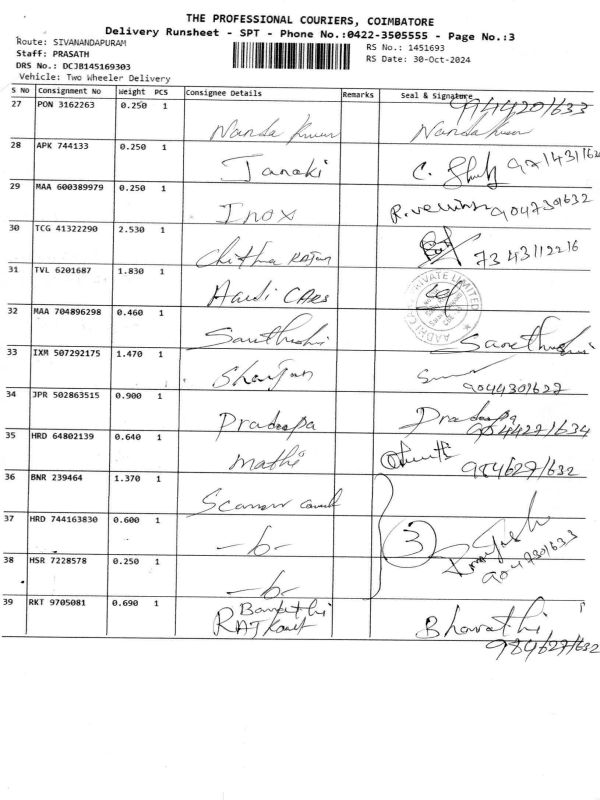 THE PROFESSIONAL COURIERS, COIMBATORE
Delivery Runsheet - SPT - Phone No.:0422-3505555 - Page No.:3
Route: SIVANANDAPURAM
RS No.: 1451693
Staff: PRASATH
RS Date: 30-Oct-2024
DRS No.: DCJB145169303
Vehicle: Two Wheeler Delivery
S No Consignment No Weight PCS Consignee Details Remarks Seal & Signature
27 PON 3162263 0.250 1 Nanda Nanda
28 APK 744133 0.250 1 Janaki C.
29 MAA 600389979 0.250 1 Inox 9047301632
30 TCG 41322290 2.530 1 Chithra Rajan 7343112216
31 TVL 6201687 1.830 1 CARS
PRIVATE LIMITED
32 MAA 704896298 0.460 1
33 IXM 507292175 1.470 1 9044301627
34 JPR 502863515 0.900 1 Pradeepa Pradeepa
35 HRD 64802139 0.640 1 Mathi 984627/632
36 BNR 239464 1.370 1
37 HRD 744163830 0.600 1 3
9047301633
38 HSR 7228578 0.250 1
39 RKT 9705081 0.690 1 Bharathi
984627/632